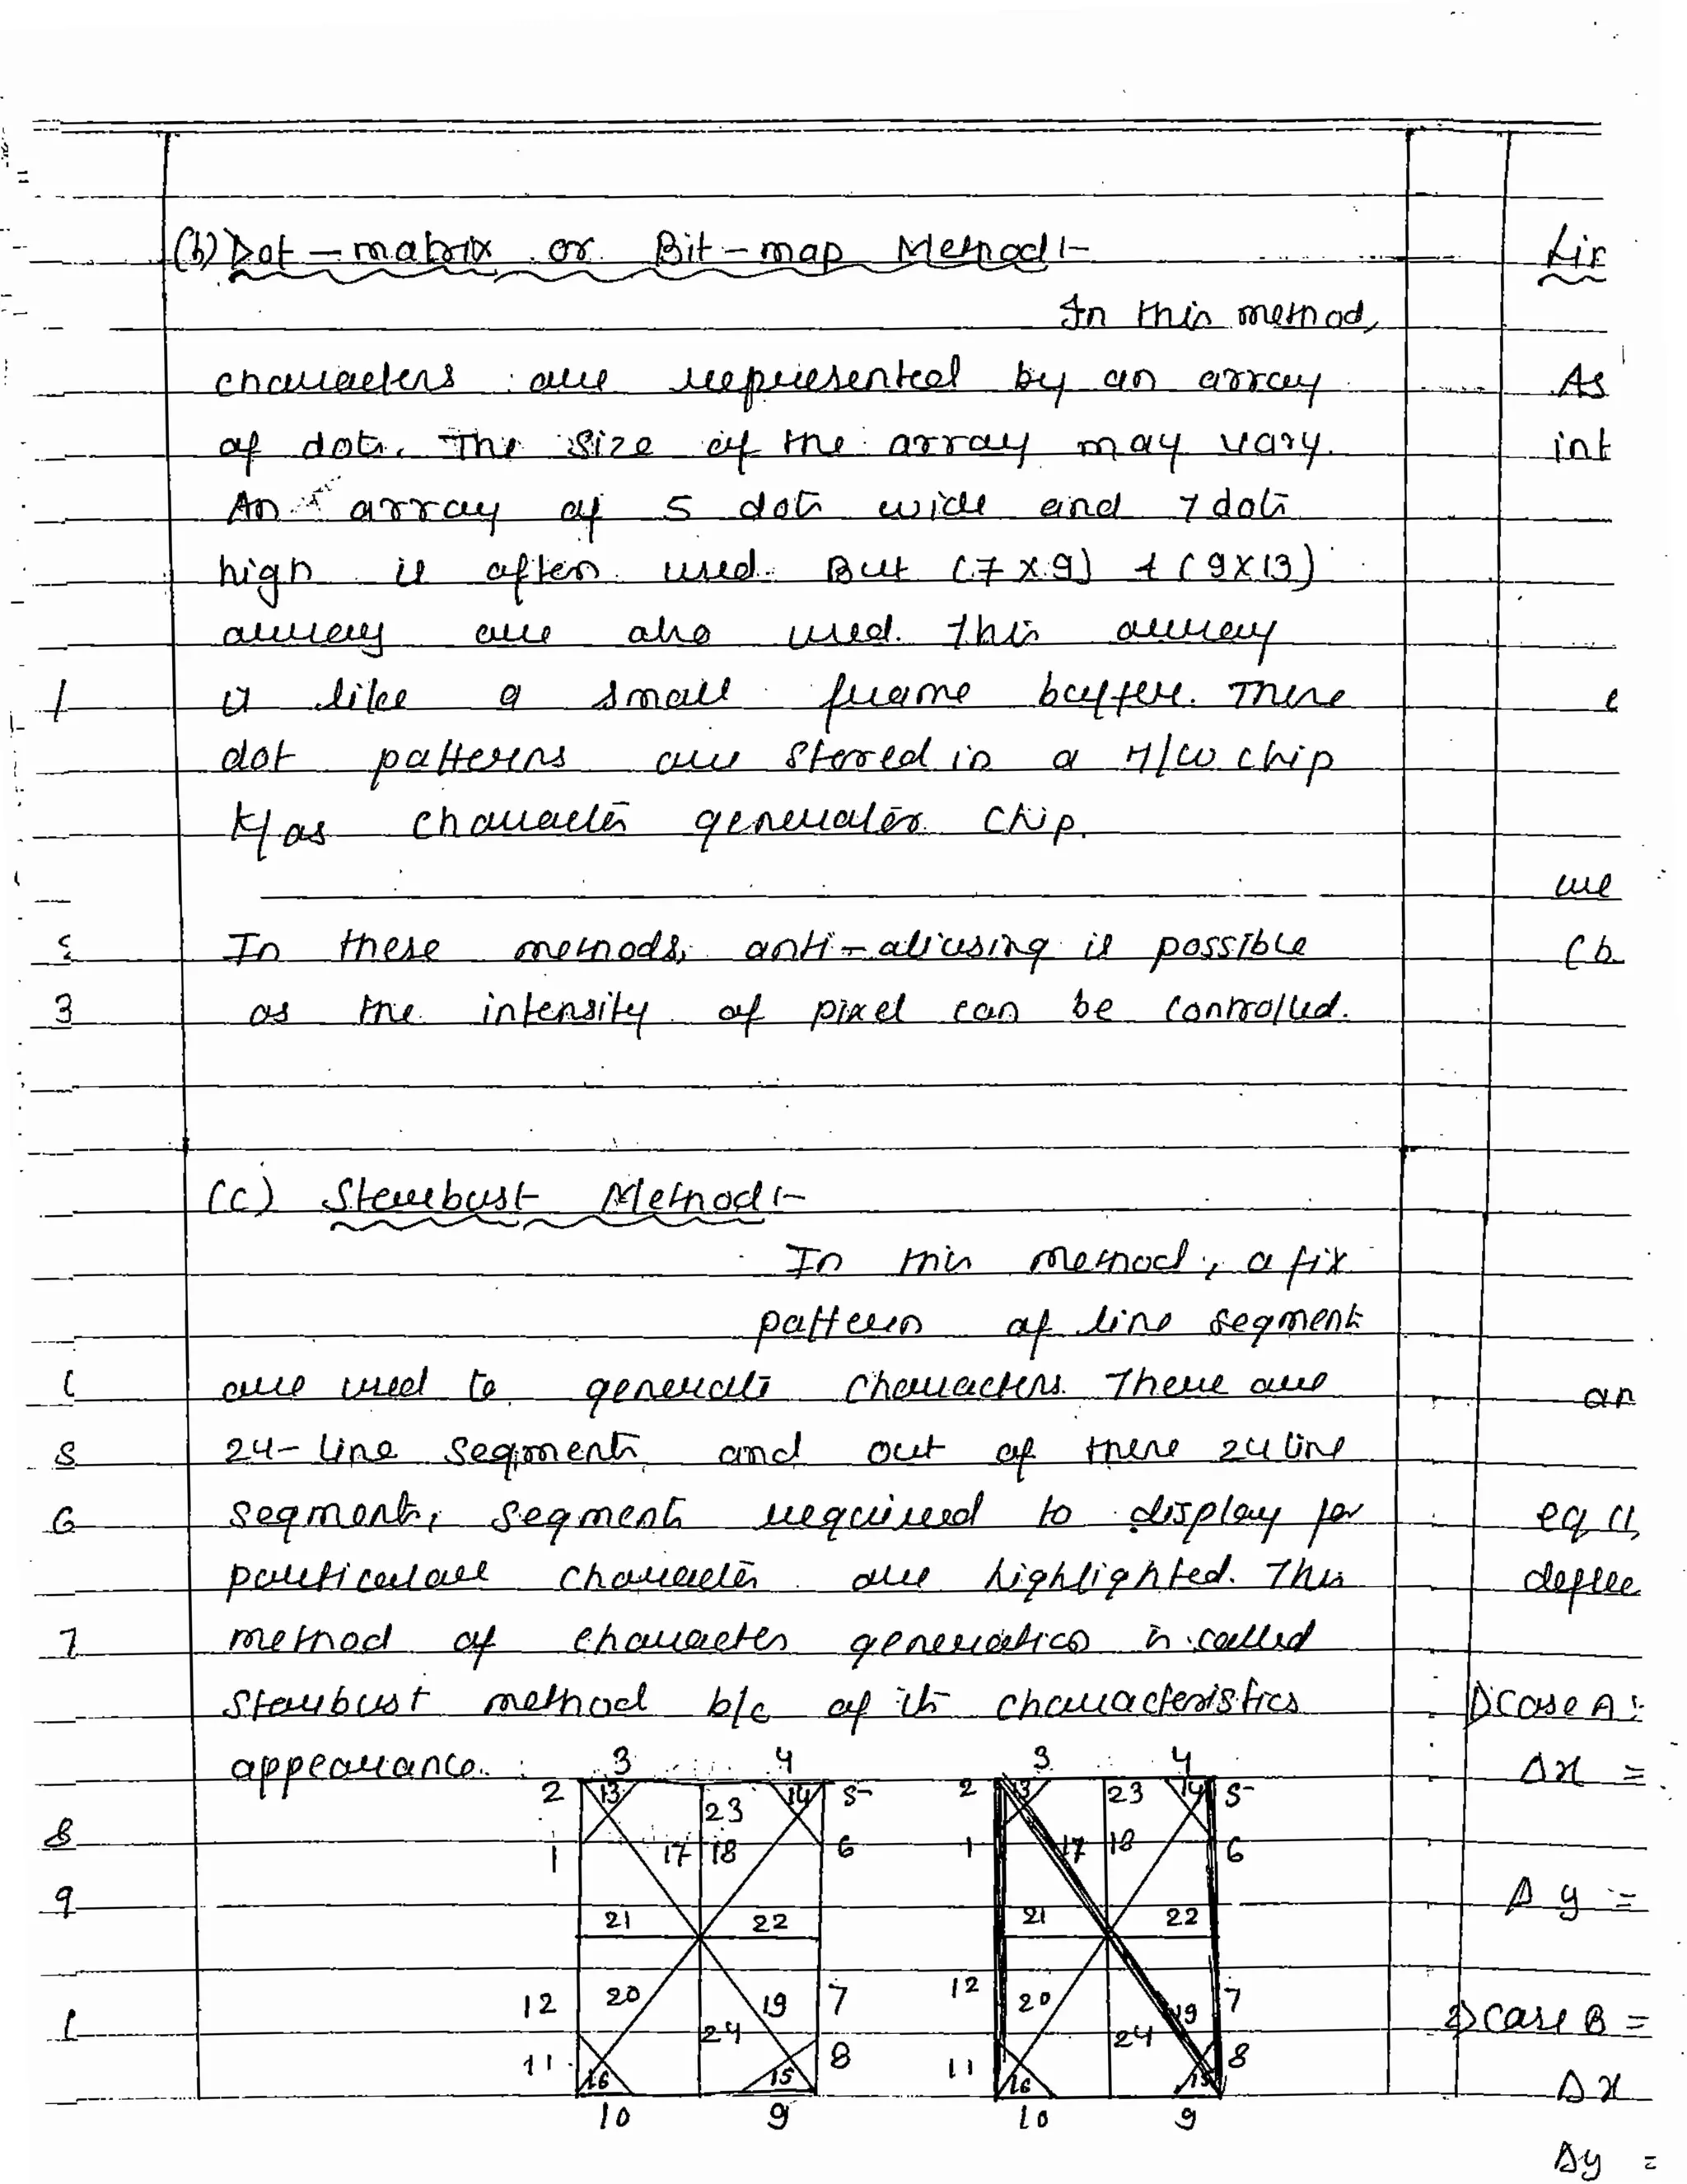 (b) Dot-matrix or Bit-map Method:-
In this method,
characters are represented by an array
of dots. The size of the array may vary.
An array of 5 dots wide and 7 dots
high is often used. But (7 X 9) & (9 X 13)
array are also used. This array
is like a small frame buffer. These
dot patterns are stored in a H/W chip
K/as character generator chip.
In these methods, anti-aliasing is possible
as the intensity of pixel can be controlled.
(c) Starbust Method:-
In this method, a fix
pattern of line segments
are used to generate characters. There are
24-line segments and out of these 24 line
segments, segments required to display for
particular character are highlighted. This
method of character generation is called
Starbust method b/c of its characteristics
appearance.
3 4 3 4
2 13 23 14 5 2 13 23 14 5
1 17 18 6 1 17 18 6
21 22 21 22
12 20 19 7 12 20 19 7
24 24
11 16 15 8 11 16 15 8
10 9 10 9
Lin
As
int
e
we
(b
an
eq (1)
deflec
1) Case A:
Δx =
Δy =
2) Case B =
Δx
Δy =
1
3
6
7
8
9